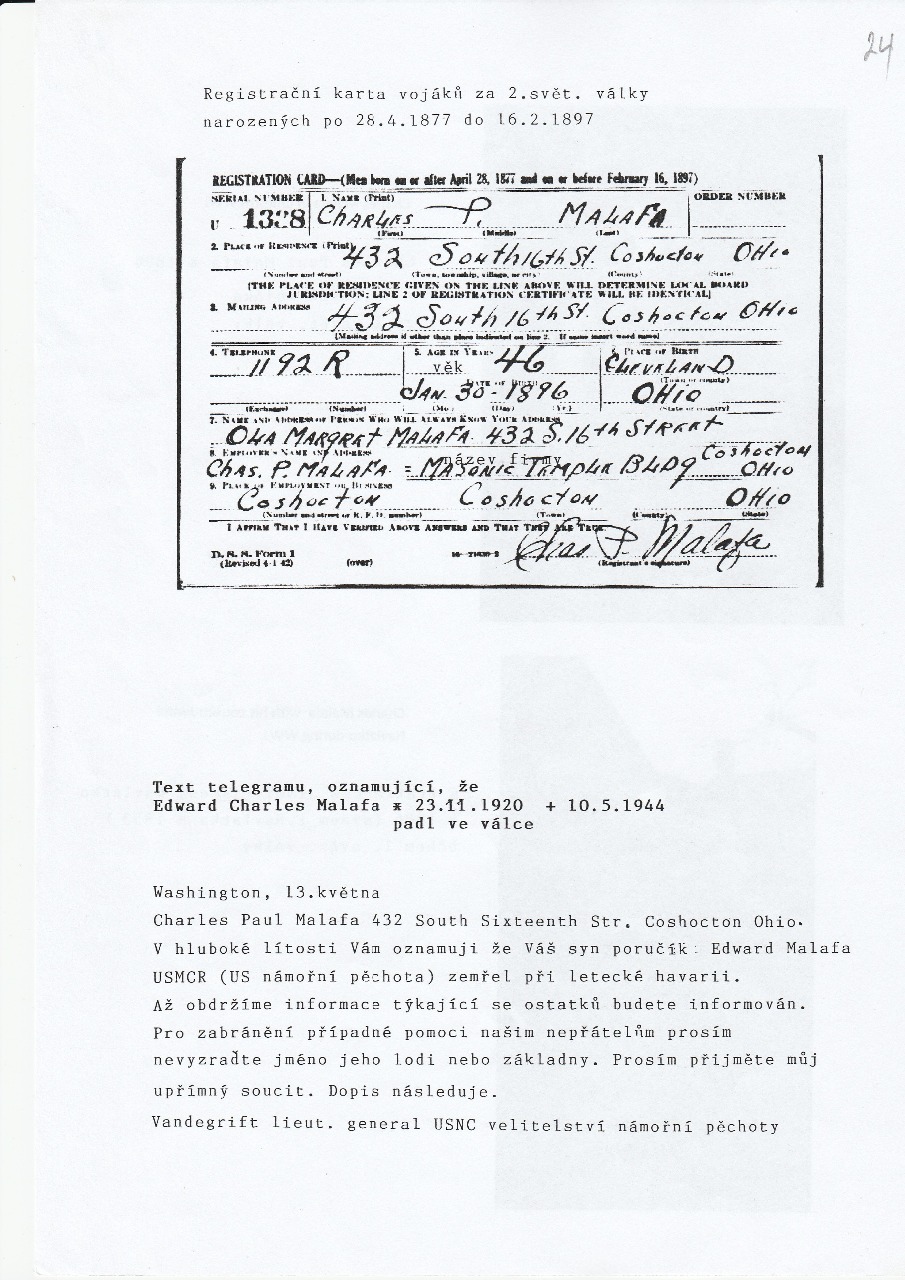 24
Registrační karta vojáků za 2.svět. války
narozených po 28.4.1877 do 16.2.1897
REGISTRATION CARD—(Men born on or after April 28, 1877 and on or before February 16, 1897)
SERIAL NUMBER 1. NAME (Print) ORDER NUMBER
U 1328 CHARLES P. MALAFA
(First) (Middle) (Last)
2. PLACE OF RESIDENCE (Print)
432 South 16th St. Coshocton OHIO
(Number and street) (Town, township, village, or city) (County) (State)
[THE PLACE OF RESIDENCE GIVEN ON THE LINE ABOVE WILL DETERMINE LOCAL BOARD
JURISDICTION; LINE 2 OF REGISTRATION CERTIFICATE WILL BE IDENTICAL]
3. MAILING ADDRESS
432 South 16th St. Coshocton OHIO
[Mailing address if other than place indicated on line 2. If same insert word same]
4. TELEPHONE 5. AGE IN YEARS 6. PLACE OF BIRTH
1192 R věk 46 CLEVELAND
DATE OF BIRTH (Town or county)
JAN. 30-1896 OHIO
(Exchange) (Number) (Mo.) (Day) (Yr.) (State or country)
7. NAME AND ADDRESS OF PERSON WHO WILL ALWAYS KNOW YOUR ADDRESS
MARGRET MALAFA 432 S. 16th STREET
8. EMPLOYER'S NAME AND ADDRESS Coshocton
CHAS. P. MALAFA = MASONIC TEMPLE BLDG OHIO
název firmy
9. PLACE OF EMPLOYMENT OR BUSINESS
Coshocton Coshocton OHIO
(Number and street or R. F. D. number) (Town) (County) (State)
I AFFIRM THAT I HAVE VERIFIED ABOVE ANSWERS AND THAT THEY ARE TRUE.
Chas P. Malafa
D. S. S. Form 1
(Revised 4-1-42) (over) (Registrant's signature)
Text telegramu, oznamující, že
Edward Charles Malafa * 23.11.1920 + 10.5.1944
padl ve válce
Washington, 13.května
Charles Paul Malafa 432 South Sixteenth Str. Coshocton Ohio.
V hluboké lítosti Vám oznamuji že Váš syn poručík: Edward Malafa
USMCR (US námořní pěchota) zemřel při letecké havarii.
Až obdržíme informace týkající se ostatků budete informován.
Pro zabránění případné pomoci našim nepřátelům prosím
nevyzraďte jméno jeho lodi nebo základny. Prosím přijměte můj
upřímný soucit. Dopis následuje.
Vandegrift lieut. general USNC velitelství námořní pěchoty